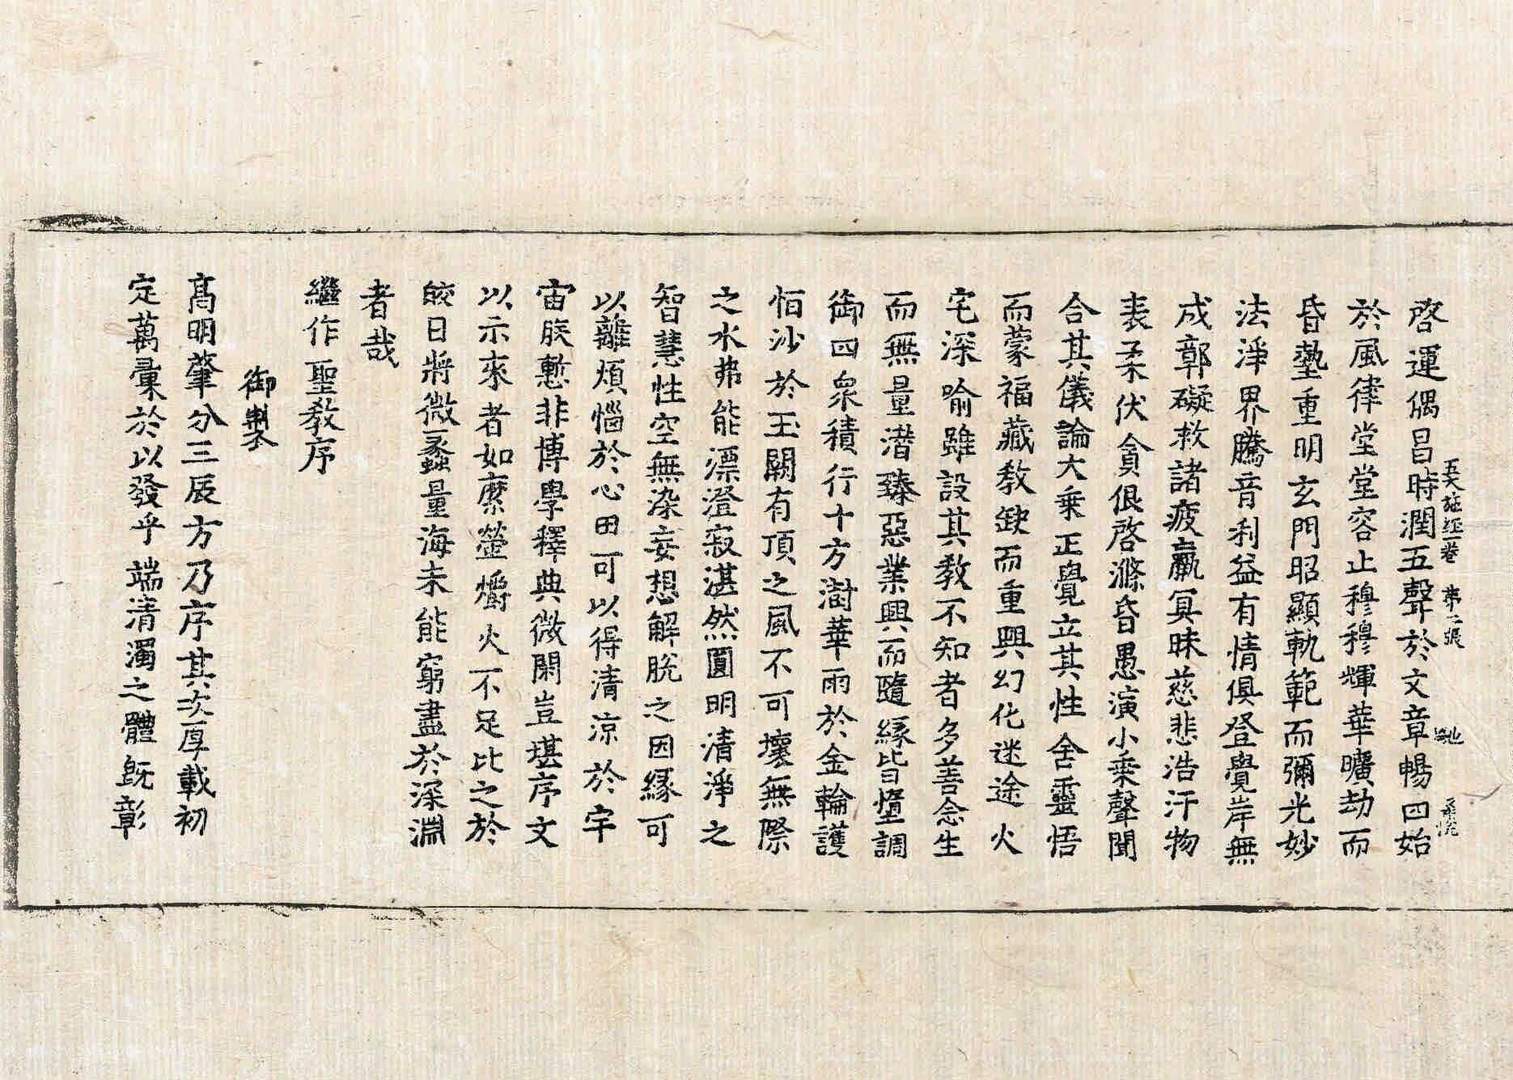 五大施經一卷 第二張
啓運偶昌時潤五聲於文章暢四始
於風律堂堂容止穆穆輝華曠劫而
昏墊重明玄門昭顯軌範而彌光妙
法淨界騰音利益有情俱登覺岸無
成鄣礙救諸疲羸冥昧慈悲浩汗物
表柔伏貪佷啓滌昏愚演小乗聲聞
合其儀論大乗正覺立其性含靈悟
而蒙福藏教缺而重興幻化迷途火
宅深喻雖設其教不知者多善念生
而無量潛臻惡業興而隨縁皆墮調
御四衆積行十方澍華雨於金輪護
恒沙於玉闕有頂之風不可壞無際
之水弗能漂澄寂湛然圓明清淨之
智慧性空無染妄想解脫之因縁可
以離煩惱於心田可以得清涼於宇
宙朕慙非博學釋典微閑豈堪序文
以示來者如縻螢爝火不足比之於
皎日將微蠡量海未能窮盡於深淵
者哉
繼作聖教序
御製
髙明肇分三辰方乃序其次厚載初
定萬彙於以發乎端清濁之體旣彰